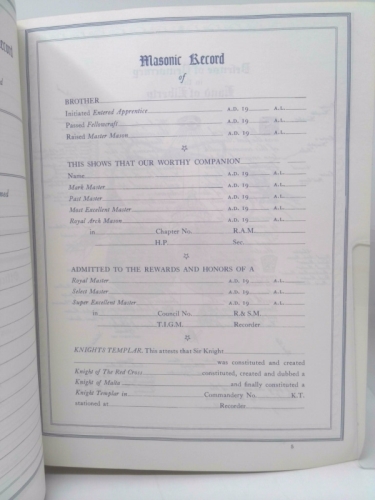 Masonic Record
of
BROTHER
Initiated Entered Apprentice A.D. 19 A.L.
Passed Fellowcraft A.D. 19 A.L.
Raised Master Mason A.D. 19 A.L.
THIS SHOWS THAT OUR WORTHY COMPANION
Name A.D. 19 A.L.
Mark Master A.D. 19 A.L.
Past Master A.D. 19 A.L.
Most Excellent Master A.D. 19 A.L.
Royal Arch Mason A.D. 19 A.L.
in Chapter No. R.A.M.
H.P. Sec.
ADMITTED TO THE REWARDS AND HONORS OF A
Royal Master A.D. 19 A.L.
Select Master A.D. 19 A.L.
Super Excellent Master A.D. 19 A.L.
in Council No. R & S.M.
T.I.G.M. Recorder
KNIGHTS TEMPLAR. This attests that Sir Knight
was constituted and created
Knight of The Red Cross constituted, created and dubbed a
Knight of Malta and finally constituted a
Knight Templar in Commandery No. K.T.
stationed at Recorder